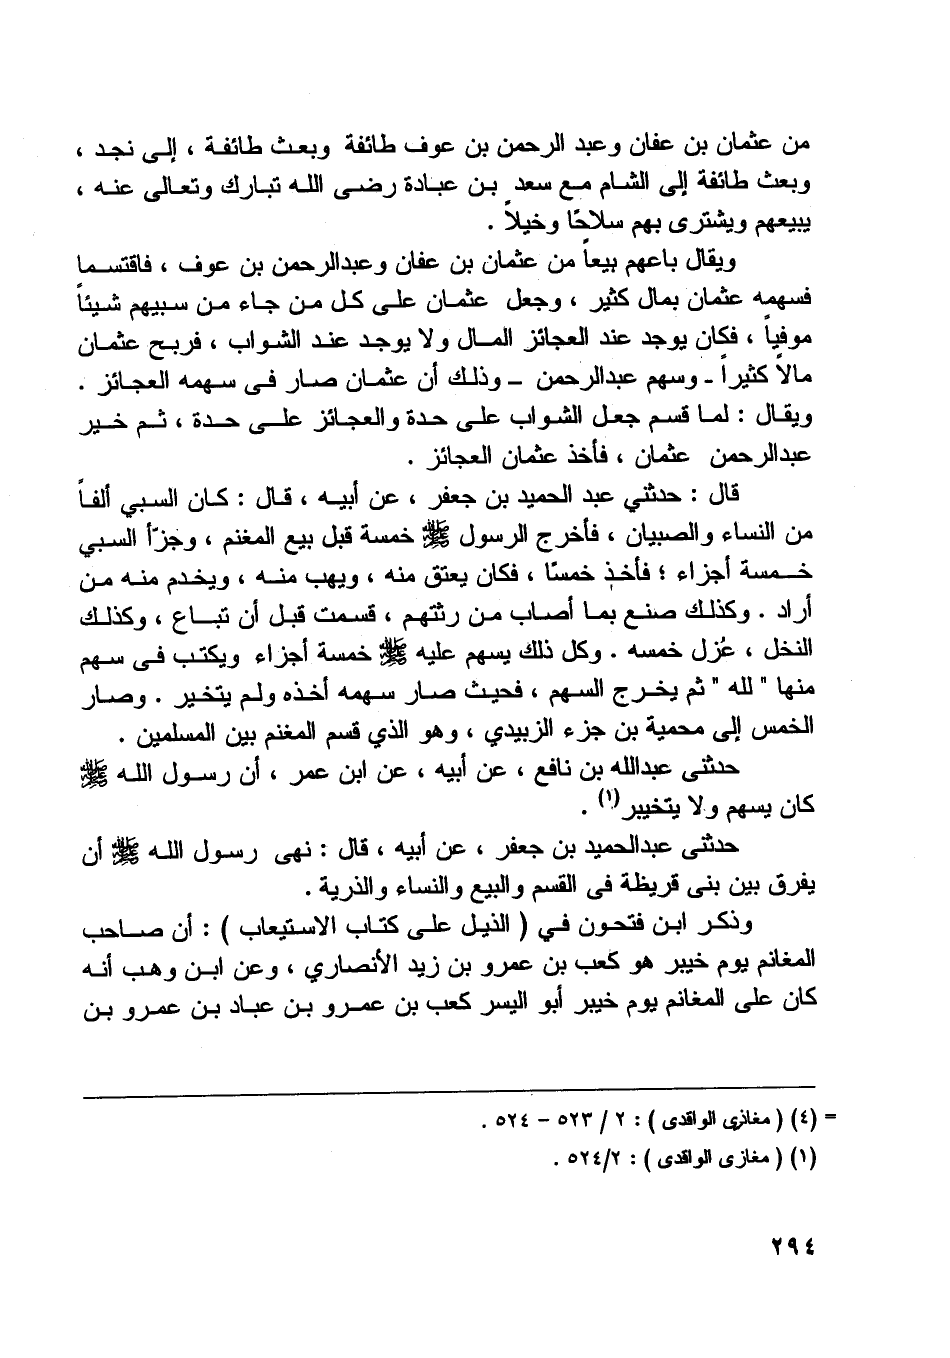 من عثمان بن عفان وعبد الرحمن بن عوف طائفة وبعث طائفة ، إلى نجد ،
وبعث طائفة إلى الشام مع سعد بن عبادة رضى الله تبارك وتعالى عنه ،
يبيعهم ويشترى بهم سلاحًا وخيلاً .
ويقال باعهم بيعاً من عثمان بن عفان وعبدالرحمن بن عوف ، فاقتسما
فسهمه عثمان بمال كثير ، وجعل عثمان على كل من جاء من سبيهم شيئاً
موفياً ، فكان يوجد عند العجائز المال ولا يوجد عند الشواب ، فربح عثمان
مالاً كثيراً ـ وسهم عبدالرحمن ـ وذلك أن عثمان صار فى سهمه العجائز .
ويقال : لما قسم جعل الشواب على حدة والعجائز على حدة ، ثم خير
عبدالرحمن عثمان ، فأخذ عثمان العجائز .
قال : حدثني عبد الحميد بن جعفر ، عن أبيه ، قال : كان السبي ألفاً
من النساء والصبيان ، فأخرج الرسول ﷺ خمسة قبل بيع المغنم ، وجزّأ السبي
خمسة أجزاء ؛ فأخذ خمسًا ، فكان يعتق منه ، ويهب منه ، ويخدم منه من
أراد . وكذلك صنع بما أصاب من رثتهم ، قسمت قبل أن تباع ، وكذلك
النخل ، عُزل خمسه . وكل ذلك يسهم عليه ﷺ خمسة أجزاء ويكتب فى سهم
منها " لله " ثم يخرج السهم ، فحيث صار سهمه أخذه ولم يتخير . وصار
الخمس إلى محمية بن جزء الزبيدي ، وهو الذي قسم المغنم بين المسلمين .
حدثنى عبدالله بن نافع ، عن أبيه ، عن ابن عمر ، أن رسول الله ﷺ
كان يسهم ولا يتخيير(١) .
حدثنى عبدالحميد بن جعفر ، عن أبيه ، قال : نهى رسول الله ﷺ أن
يفرق بين بنى قريظة فى القسم والبيع والنساء والذرية .
وذكر ابن فتحون في ( الذيل على كتاب الاستيعاب ) : أن صاحب
المغانم يوم خيبر هو كعب بن عمرو بن زيد الأنصاري ، وعن ابن وهب أنه
كان على المغانم يوم خيبر أبو اليسر كعب بن عمرو بن عباد بن عمرو بن
= (٤) ( مغازى الواقدى ) : ٢ / ٥٢٣ – ٥٢٤ .
(١) ( مغازى الواقدى ) : ٥٢٤/٢ .
٢٩٤